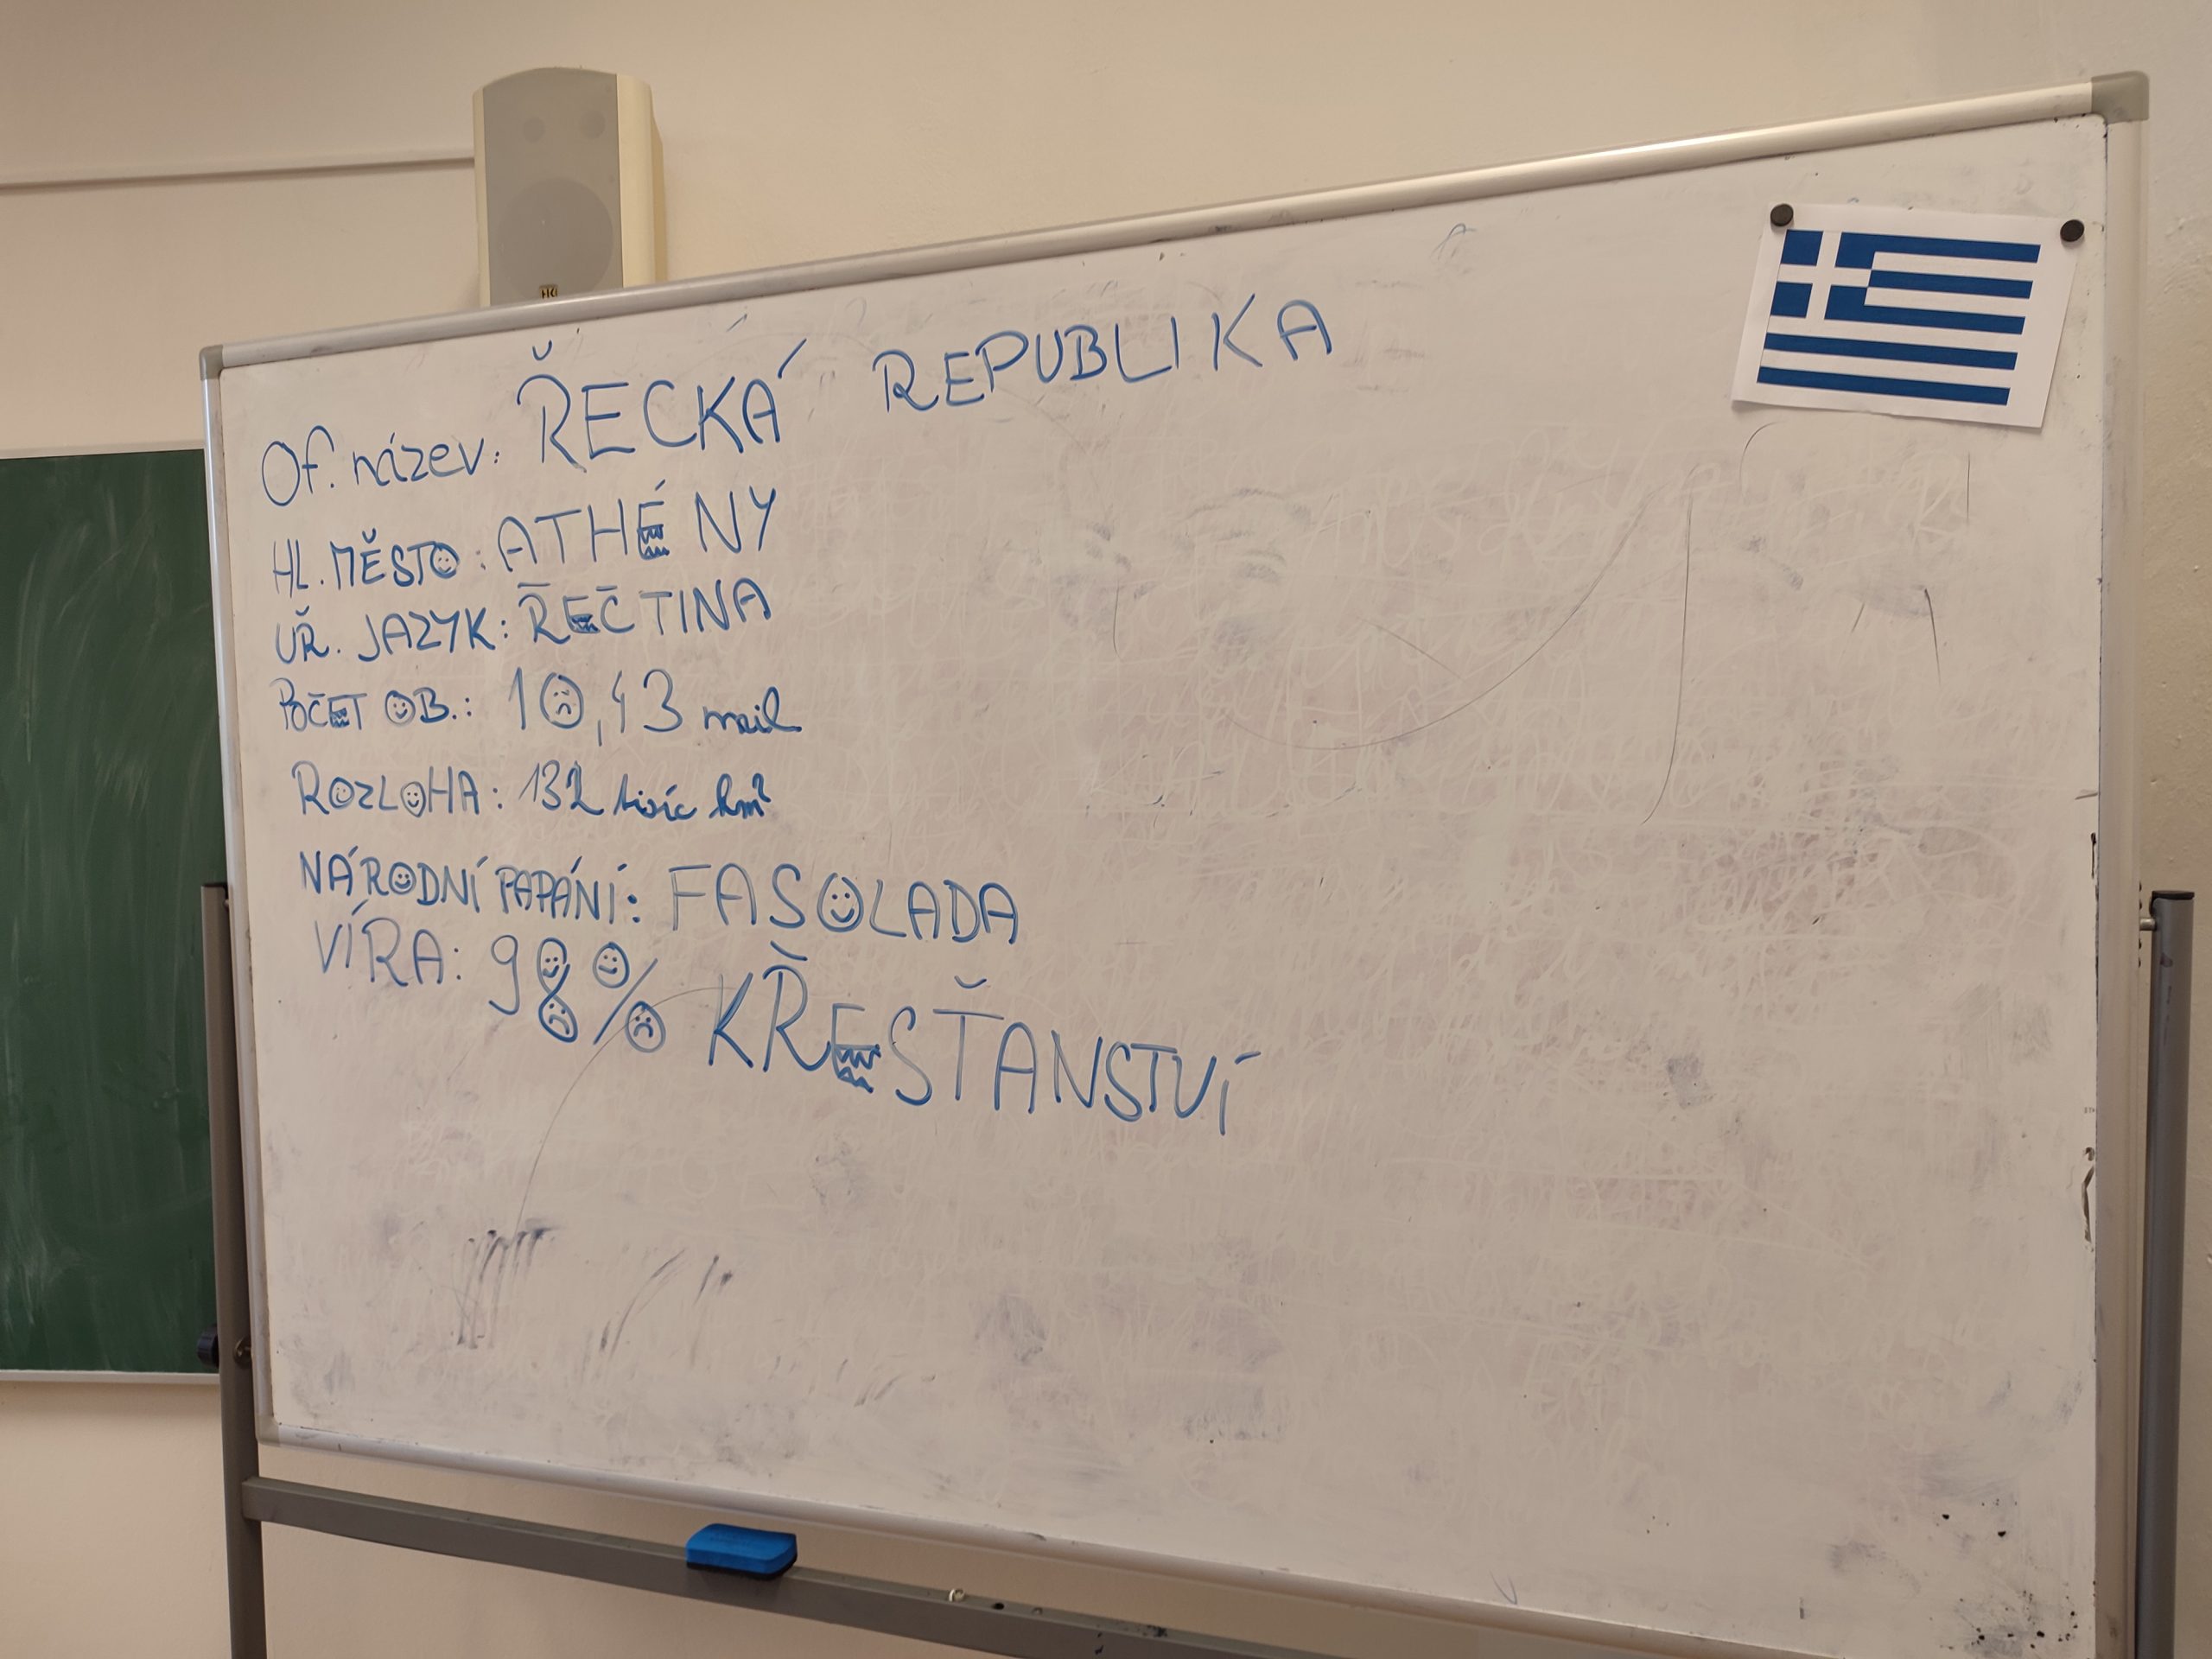 Of. název: ŘECKÁ REPUBLIKA
HL. MĚSTO: ATHÉNY
ÚŘ. JAZYK: ŘEČTINA
POČET OB.: 10,43 mil
ROZLOHA: 132 tisíc km²
NÁRODNÍ PAPÁNÍ: FASOLADA
VÍRA: 98% KŘESŤANSTVÍ